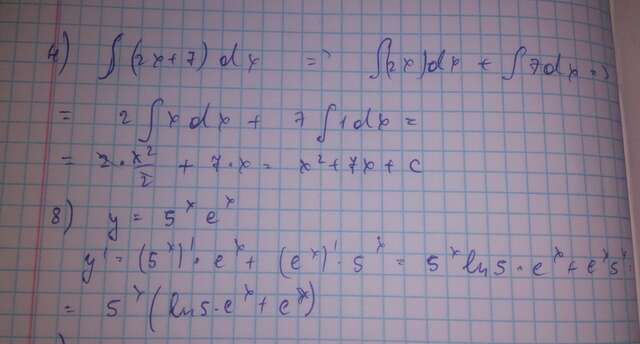 4) ∫(2x+7)dx => ∫(2x)dx + ∫7dx =>
= 2∫x dx + 7∫1dx =
= 2·x²/2 + 7·x = x²+7x+C
8) y = 5ˣ eˣ
y' = (5ˣ)'·eˣ + (eˣ)'·5ˣ = 5ˣ ln5·eˣ + eˣ5ˣ
= 5ˣ(ln5·eˣ+eˣ)